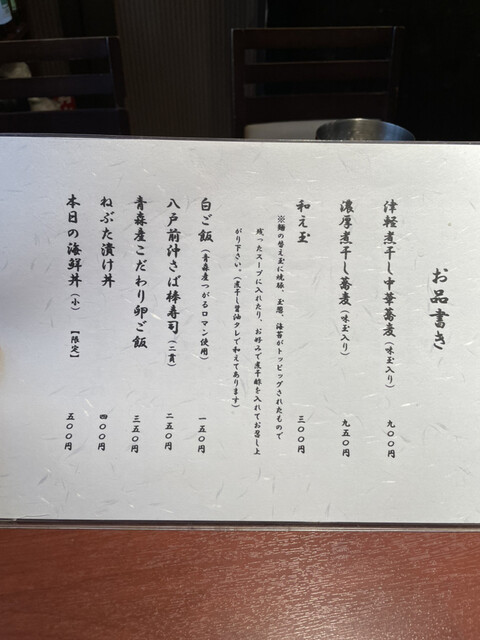 お品書き
津軽煮干し中華蕎麦（味玉入り） 九〇〇円
濃厚煮干し蕎麦（味玉入り） 九五〇円
和え玉 三〇〇円
※麺の替え玉に焼豚、玉葱、海苔がトッピングされたもので
残ったスープに入れたり、お好みで煮干酢を入れてお召し上
がり下さい。（煮干し醤油タレで和えてあります）
白ご飯（青森産つがるロマン使用） 一五〇円
八戸前沖さば棒寿司（二貫） 二五〇円
青森産こだわり卵ご飯 三五〇円
ねぶた漬け丼 四〇〇円
本日の海鮮丼（小）【限定】 五〇〇円